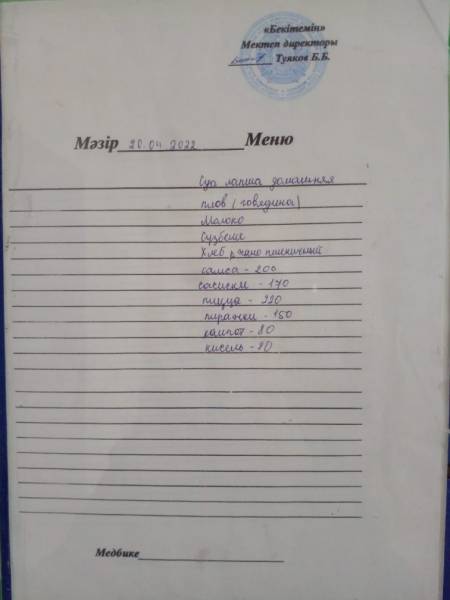 «Бекітемін»
Мектеп директоры
Туяков Б.Б.
Мәзір 20.04 2022 Меню
Суп лапша домашняя
плов (говядина)
Молоко
Сузбеше
Хлеб ржано пшеничный
самса - 200
сосиски - 170
пицца - 220
пирожки - 150
компот - 80
кисель - 80
Медбике